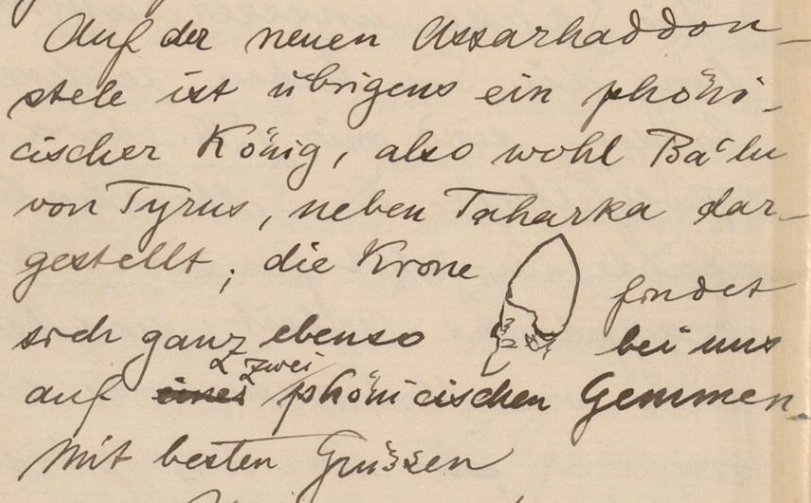 Auf der neuen Assarhaddon-
stele ist übrigens ein phöni-
cischer König, also wohl Ba‘lu
von Tyrus, neben Taharka dar-
gestellt; die Krone findet
sich ganz ebenso bei uns
auf zwei phönicischen Gemmen.
Mit besten Grüssen